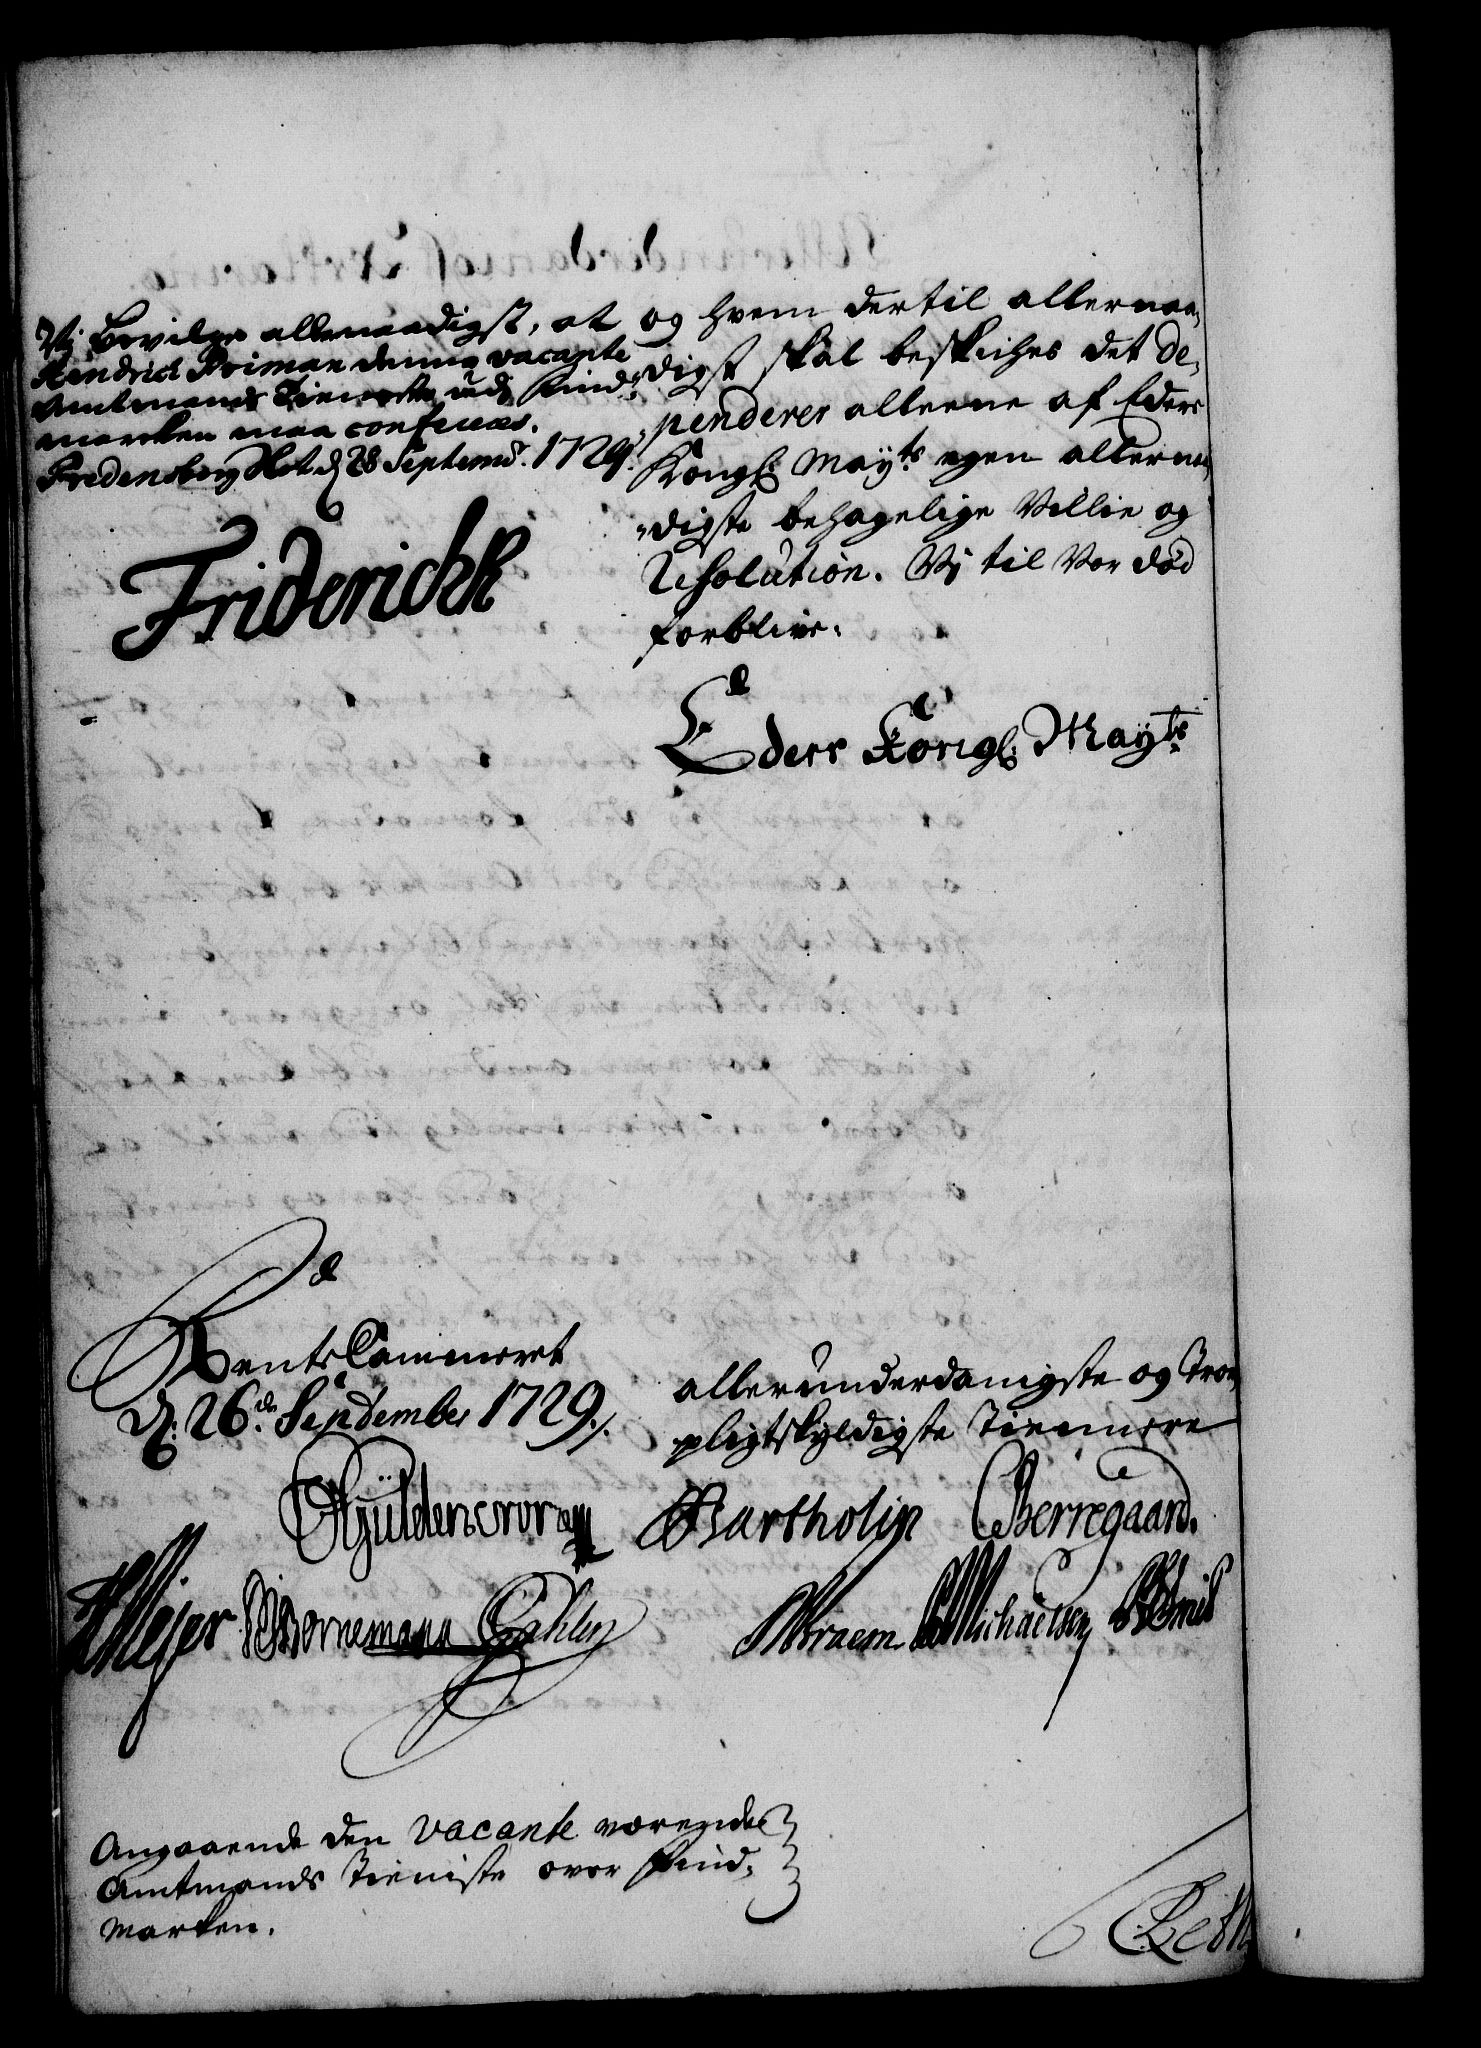 Vj bevilge allernaadigst, at
Hendrich Priman denne vacante
Amtmands Tieneste udj Find-
marcken maa conferes.
Fredensborg Slot d 28 Septembr. 1729.
Friderich R
og hvem dertil allernaa-
digst skal beskiches det de-
penderer alleene af Eders
Kongl: Mayts egen allernaa-
digste behagelige Villie og
Resolution. Vj til Vor død
forblive.
Eders Kongl: Mayts
RenteCammeret
d: 26de September 1729.
allerunderdanigste og Troe
pligtskyldigste Tiennere
Güldencrone
Bartholin
Berregaard.
Mejer
Bornemann
Braem
Michaelsen
Angaaende den vacante værende
Amtmands Tieniste over Find-
marken.